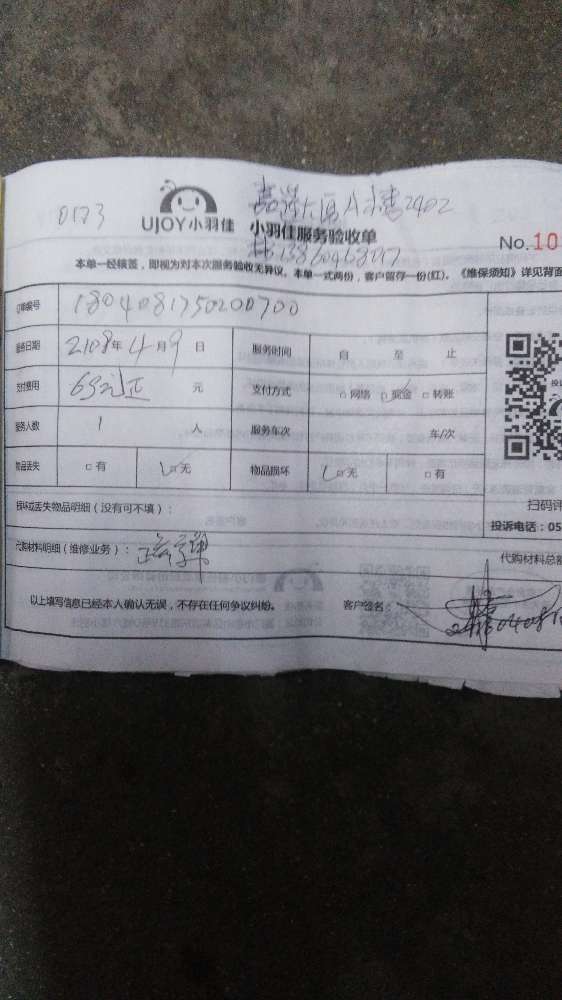 0173
UJOY小羽佳
A楼2402
小羽仕服务验收单
林13860468017
No.10
本单一经核签，即视为对本次服务验收无异议。本单一式两份，客户留存一份(红)。《维保须知》详见背面
订单编号 1804081750200700
服务日期 2108年4月9日 服务时间 自 至 止
支付费用 元 支付方式 □网络 □现金 □转账
服务人数 1 人 服务车次 车/次
物品丢失 □有 □无 物品损坏 □无 □有
损坏或丢失物品明细（没有可不填）：
扫码评
投诉电话：05
代购材料明细（维修业务）：
代购材料总额
以上填写信息已经本人确认无误，不存在任何争议纠纷。 客户签名：